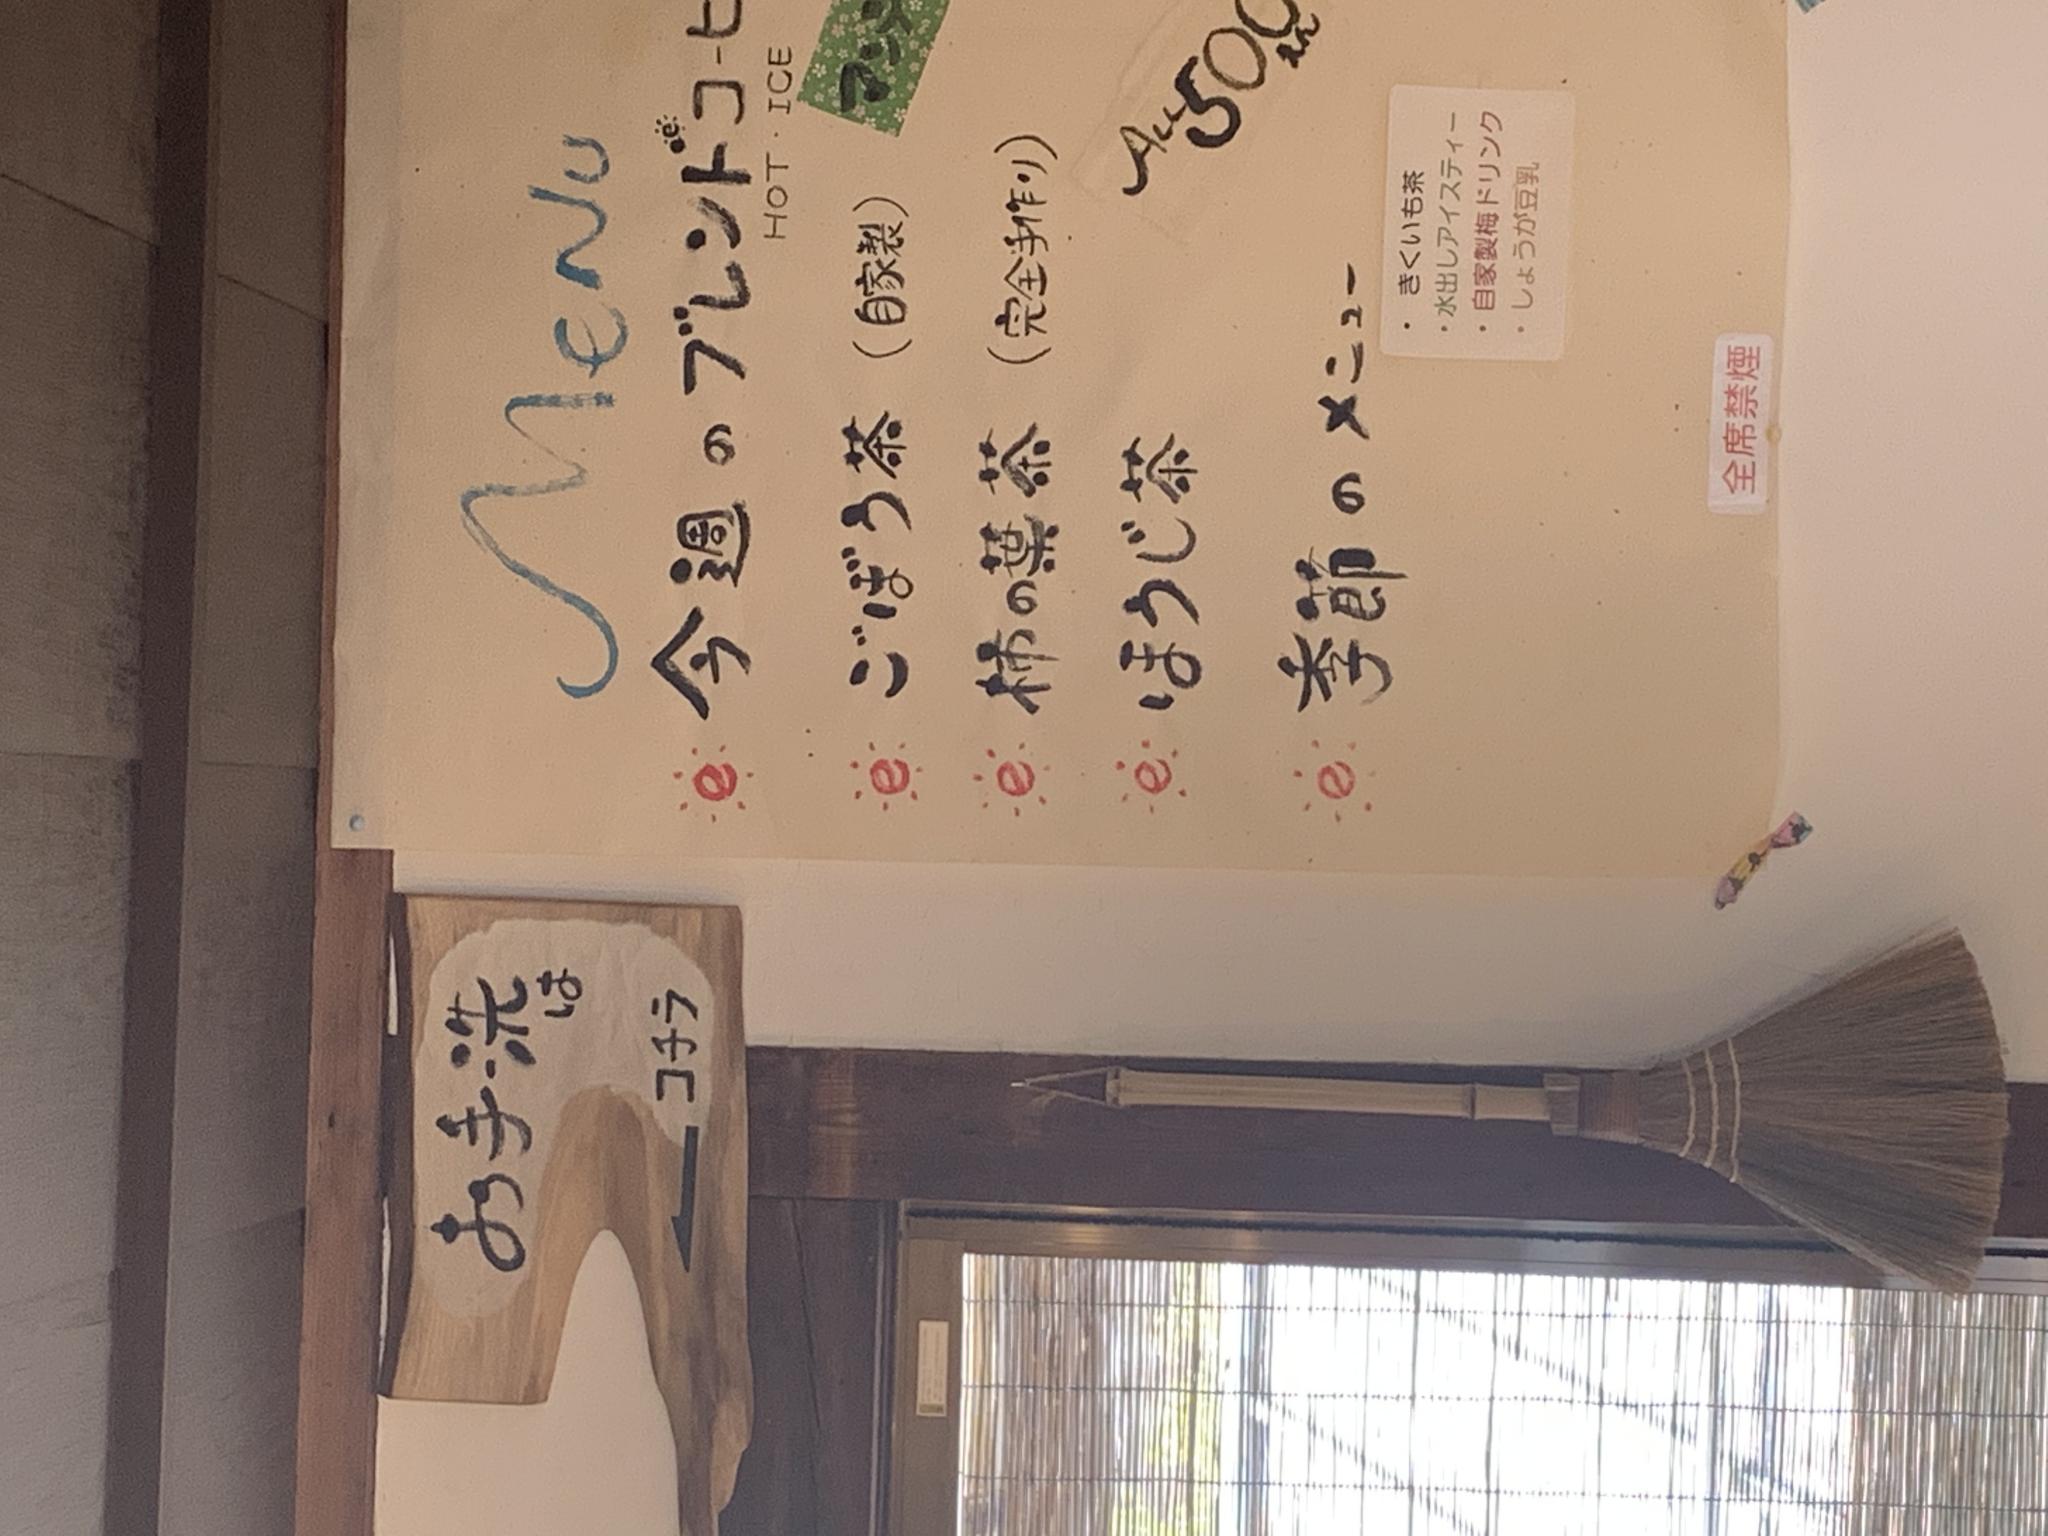 お手洗は
← コチラ
MENU
今週のブレンドコーヒ
HOT・ICE
ごぼう茶 (自家製)
柿の葉茶 (完全手作り)
ほうじ茶
ALL 500
季節のメニュー
・きくいも茶
・水出しアイスティー
・自家製梅ドリンク
・しょうが豆乳
全席禁煙